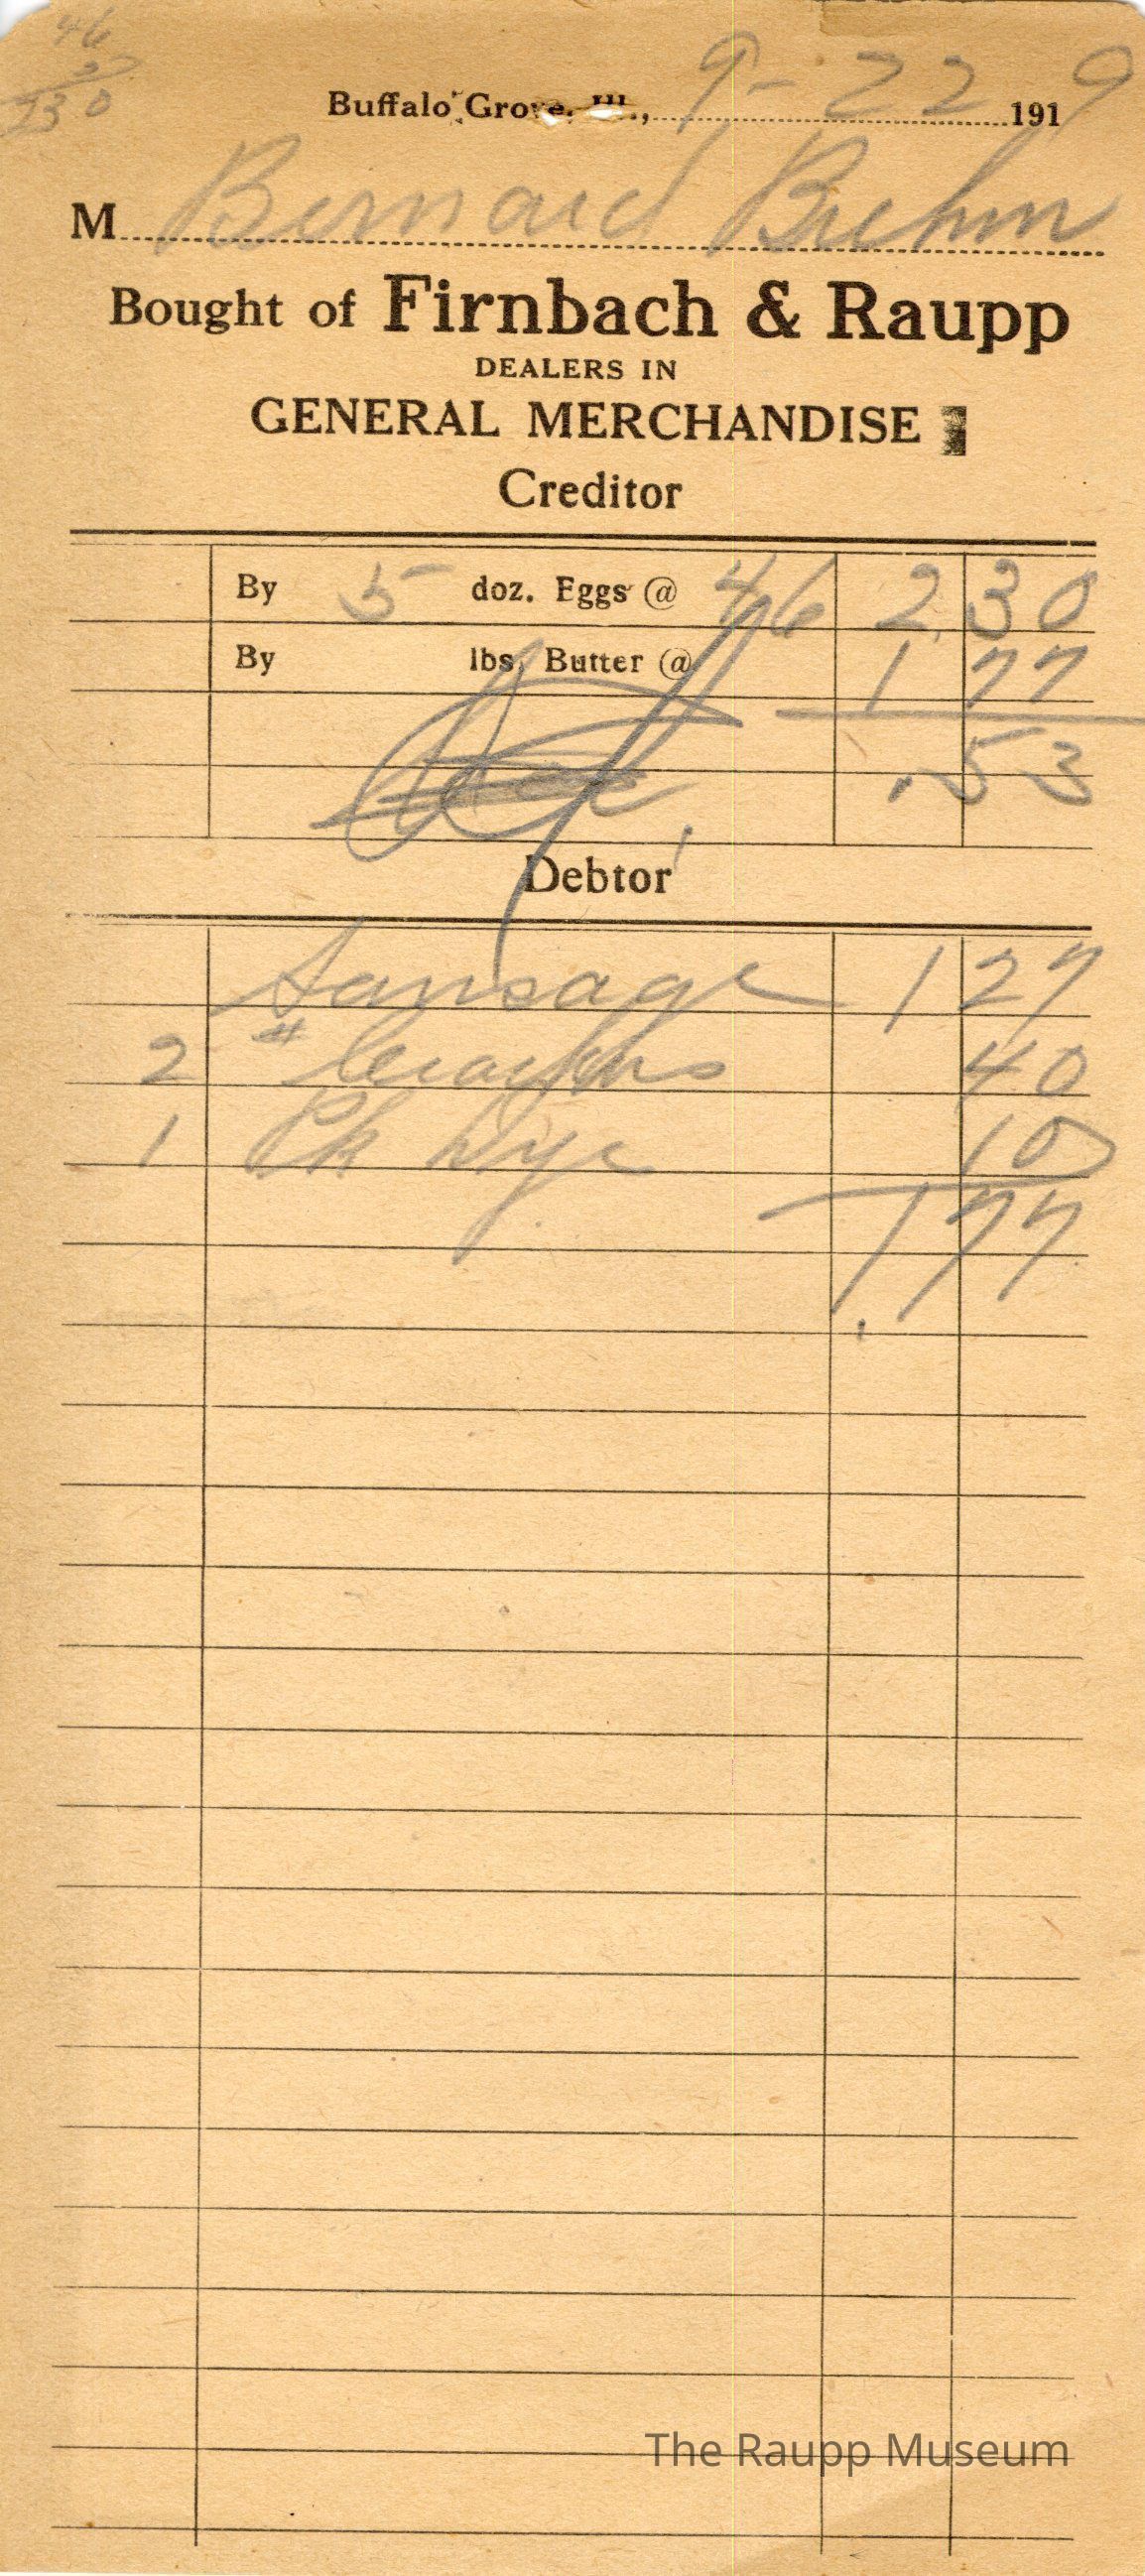 46
5
230
Buffalo Grove, Ill., 9-22 1919
M Bernard Buehm
Bought of Firnbach & Raupp
DEALERS IN
GENERAL MERCHANDISE
Creditor
By 5 doz. Eggs @ 46 2 30
By lbs. Butter @ 1 77
.53
Debtor
Sausage 1 27
2 # 40
1 Pk Dye 10
1 77
The Raupp Museum